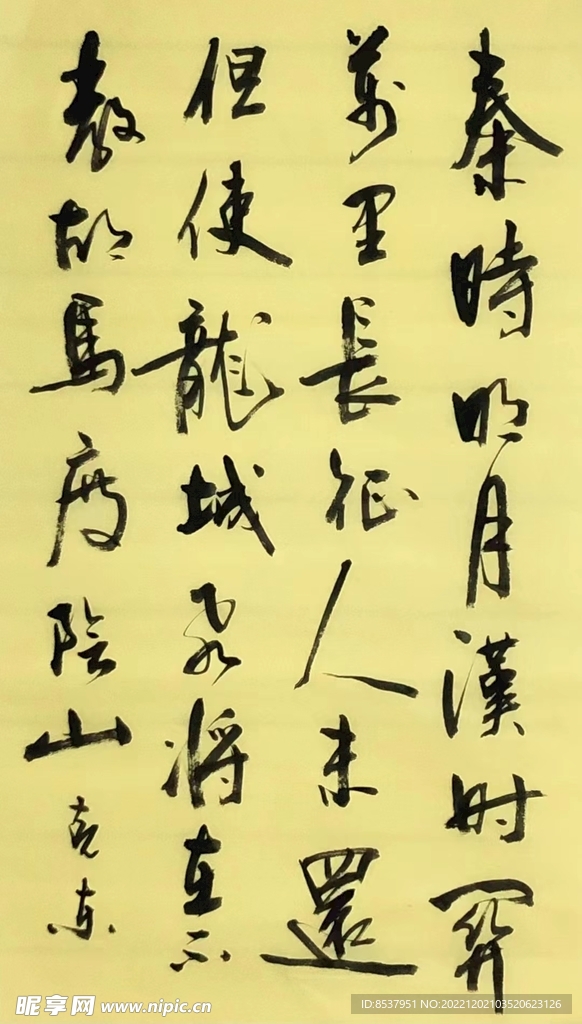 秦時明月漢时關
萬里長征人未還
但使龍城飛將在不
教胡馬度陰山 克东
昵享网 www.nipic.cn
ID:8537951 NO:20221202103520623126